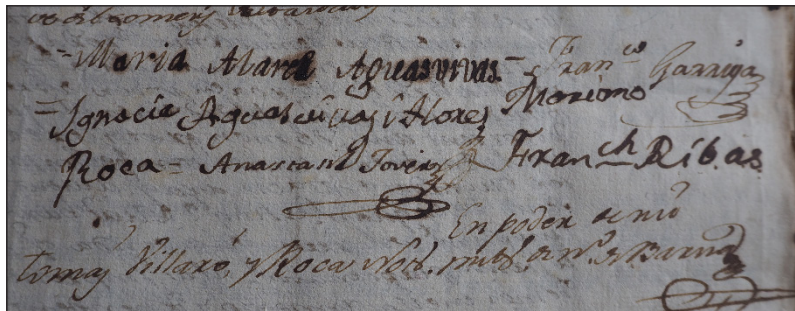 = Maria Alaret Aguasvivas = Fran.co Garriga
= Ignacia Aguasvivas i Flores Mariano
Roca = Anastasi Jover Fran.ch Ribas
En poder de mi
tomas Villaró, y Roca Not. pub. de n.o de Barna